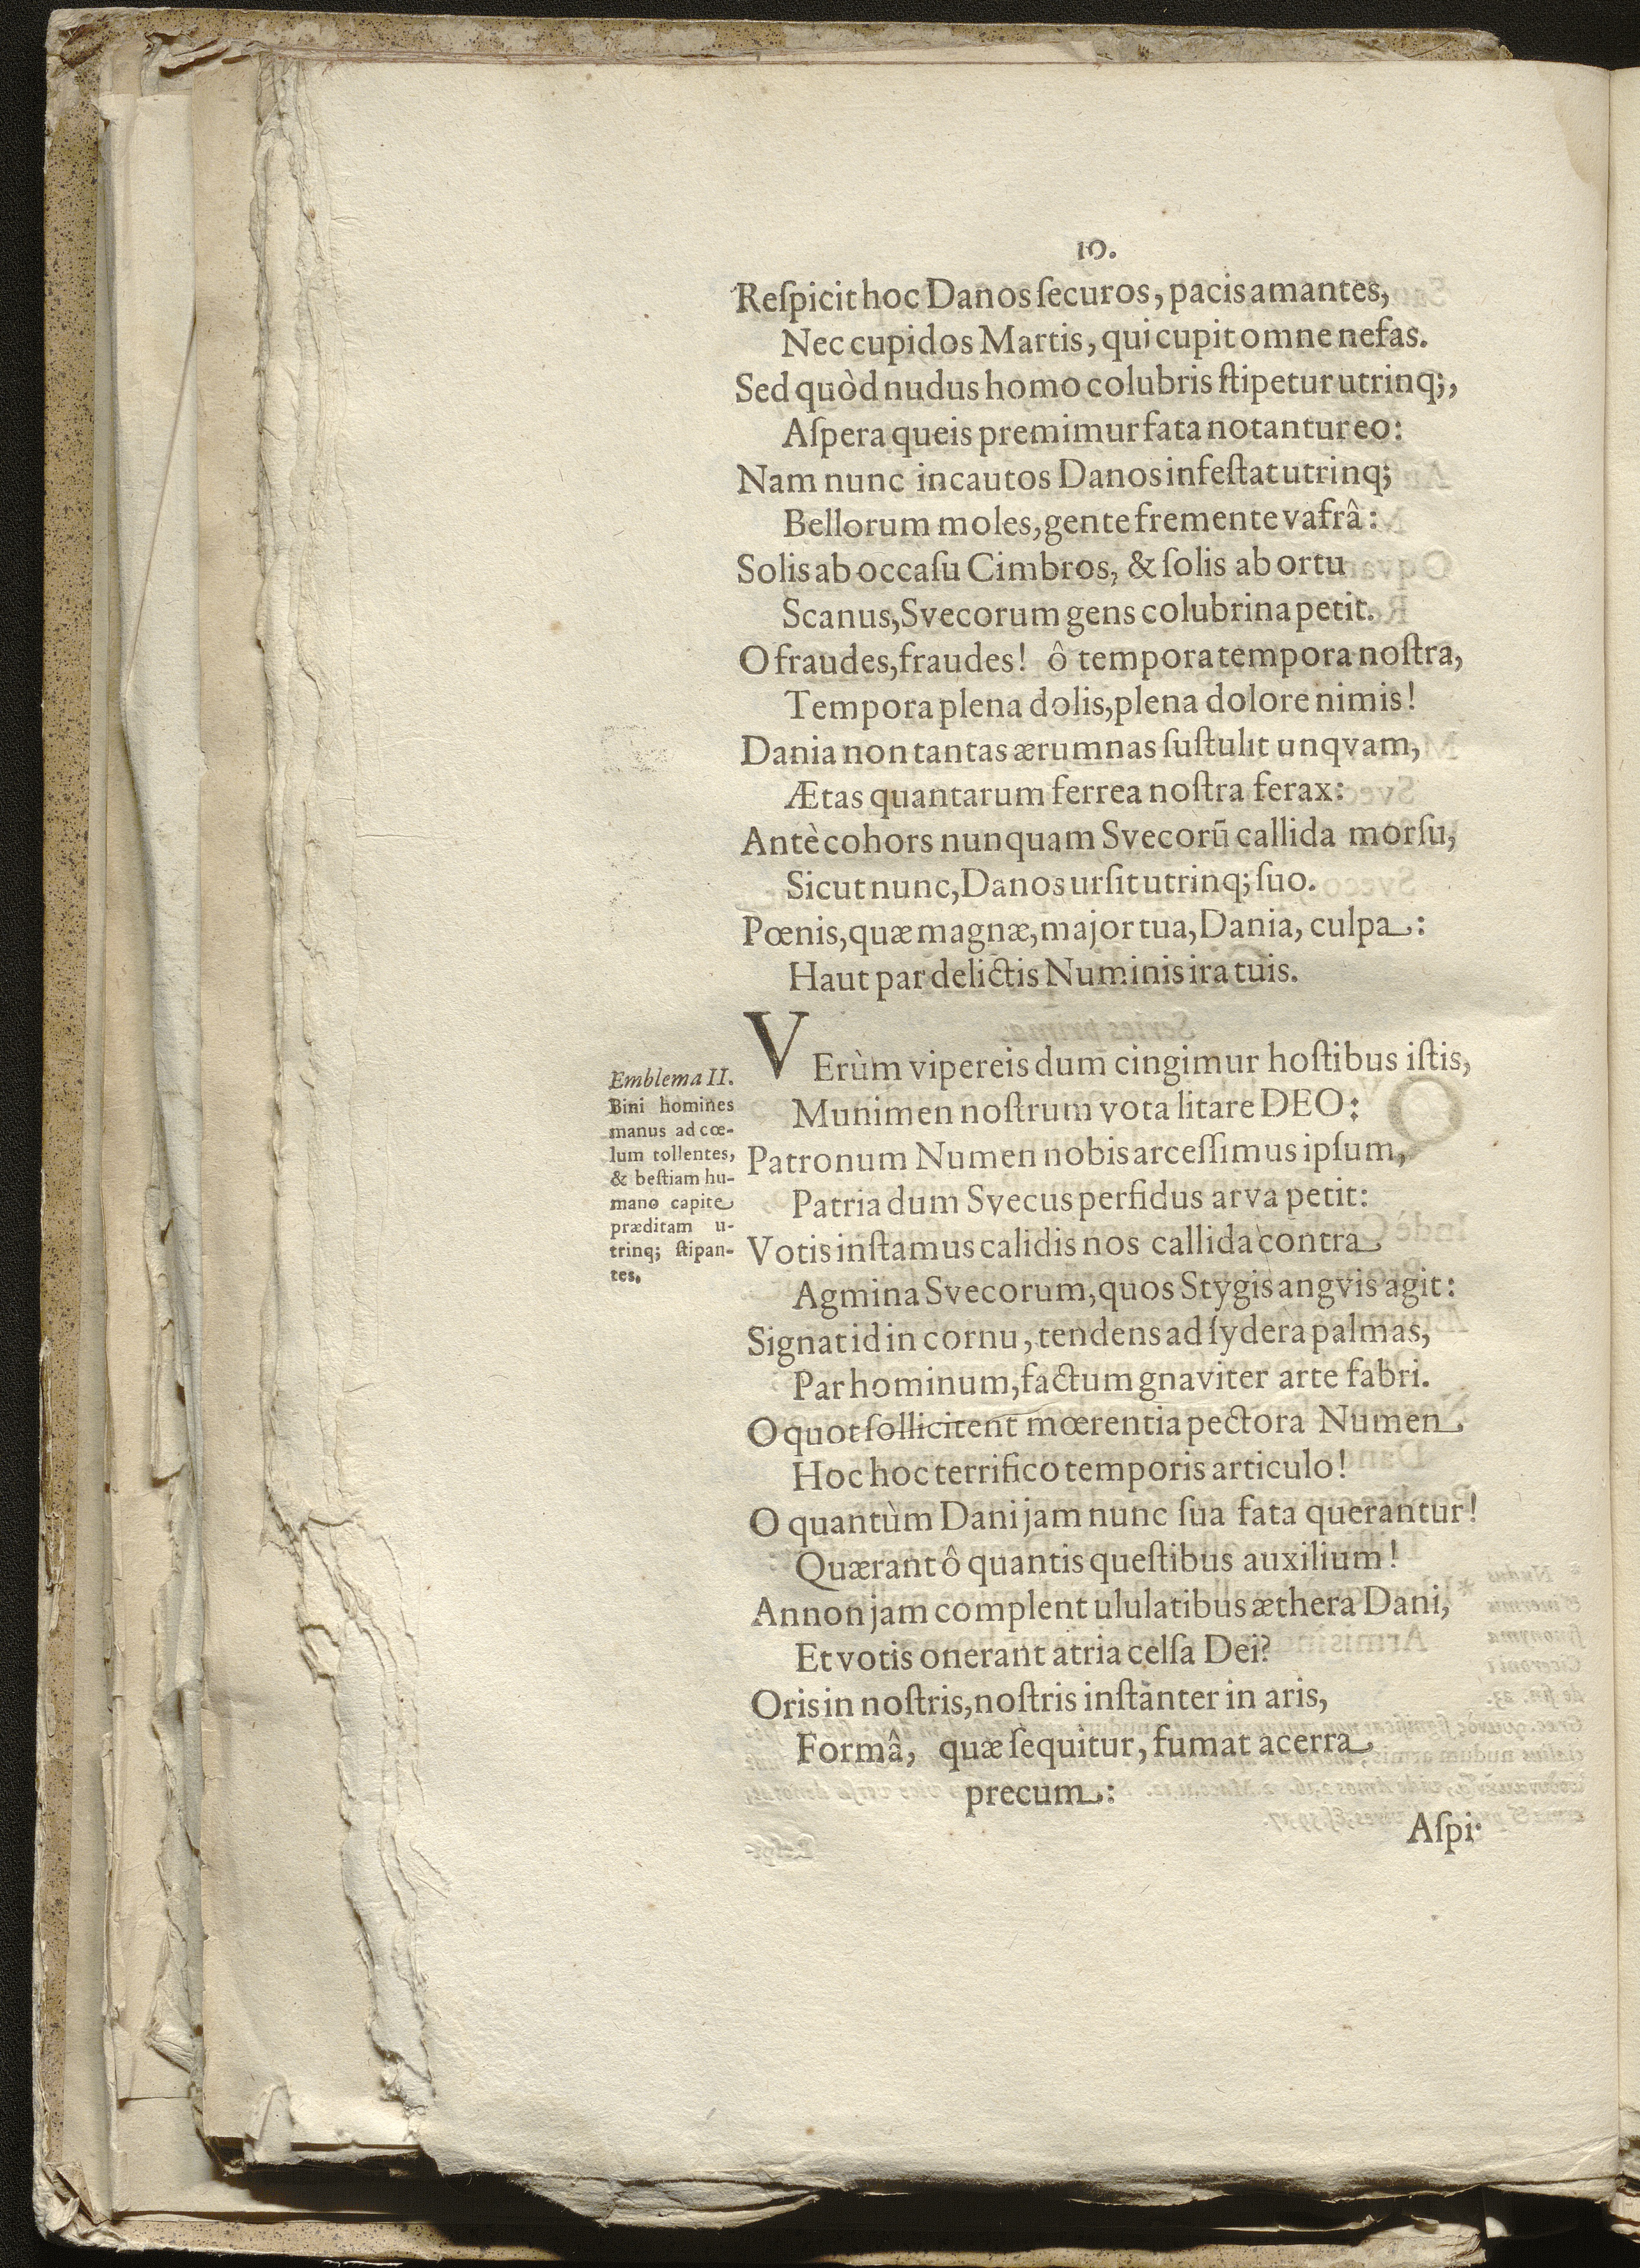 10.
Reſpicit hoc Danos ſecuros, pacis amantes,
Nec cupidos Martis, qui cupit omne nefas.
Sed quòd nudus homo colubris ſtipetur utrinq;,
Aſpera queis premimur fata notantur eo:
Nam nunc incautos Danos infeſtat utrinq;
Bellorum moles, gente fremente vafrâ:
Solis ab occaſu Cimbros, & ſolis ab ortu
Scanus, Svecorum gens colubrina petit.
O fraudes, fraudes! ô tempora tempora noſtra,
Tempora plena dolis, plena dolore nimis!
Dania non tantas ærumnas ſuſtulit unqvam,
Ætas quantarum ferrea noſtra ferax:
Antè cohors nunquam Svecorū callida morſu,
Sicut nunc, Danos urſit utrinq; ſuo.
Pœnis, quæ magnæ, major tua, Dania, culpa:
Haut par delictis Numinis ira tuis.
VErùm vipereis dum cingimur hoſtibus iſtis,
Munimen noſtrum vota litare DEO:
Patronum Numen nobis arceſſimus ipſum,
Patria dum Svecus perfidus arva petit:
Votis inſtamus calidis nos callida contra
Agmina Svecorum, quos Stygis angvis agit:
Signat id in cornu, tendens ad ſydera palmas,
Par hominum, factum gnaviter arte fabri.
O quot ſollicitent mœrentia pectora Numen
Hoc hoc terrifico temporis articulo!
O quantùm Dani jam nunc ſua fata querantur!
Quærant ô quantis queſtibus auxilium!
Annon jam complent ululatibus æthera Dani,
Et votis onerant atria celſa Dei?
Oris in noſtris, noſtris inſtanter in aris,
Formâ, quæ ſequitur, fumat acerra
precum:
Aſpi-
Emblema II.
Bini homines
manus ad cœ-
lum tollentes,
& beſtiam hu-
mano capite
præditam u-
trinq; ſtipan-
tes.